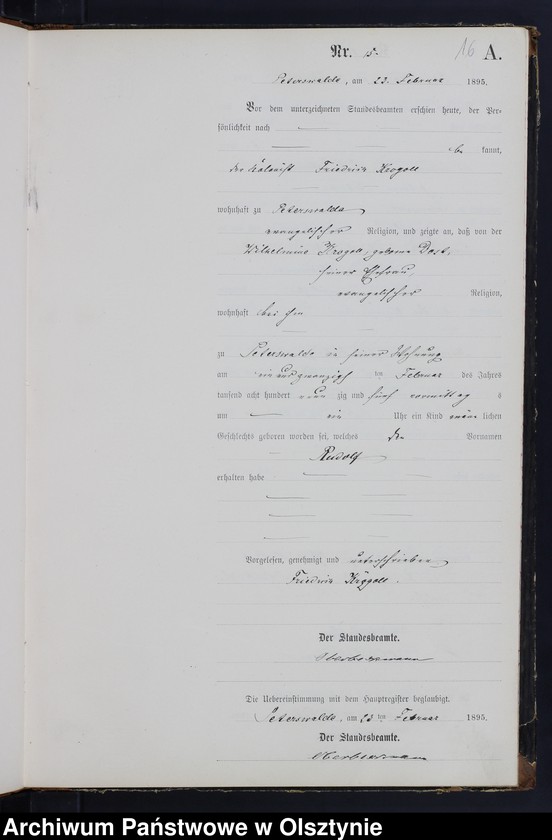 Nr. 5. 16 A.
Peterswalde, am 23. Februar 1895.
Vor dem unterzeichneten Standesbeamten erschien heute, der Per-
sönlichkeit nach
be kannt,
der Friedrich Krogoll
wohnhaft zu Peterswalde
evangelischer Religion, und zeigte an, daß von der
Wilhelmine Krogoll, geborene Dost,
seiner Ehefrau,
evangelischer Religion,
wohnhaft bei ihm
zu Peterswalde in seiner Wohnung
am ein und zwanzigsten Februar des Jahres
tausend acht hundert neun zig und fünf vormittag s
um ein Uhr ein Kind männ lichen
Geschlechts geboren worden sei, welches den Vornamen
Rudolf
erhalten habe
Vorgelesen, genehmigt und unterschrieben
Friedrich Krogoll.
Der Standesbeamte.
Die Uebereinstimmung mit dem Hauptregister beglaubigt.
Peterswalde, am 23 ten Februar 1895.
Der Standesbeamte.
Archiwum Państwowe w Olsztynie